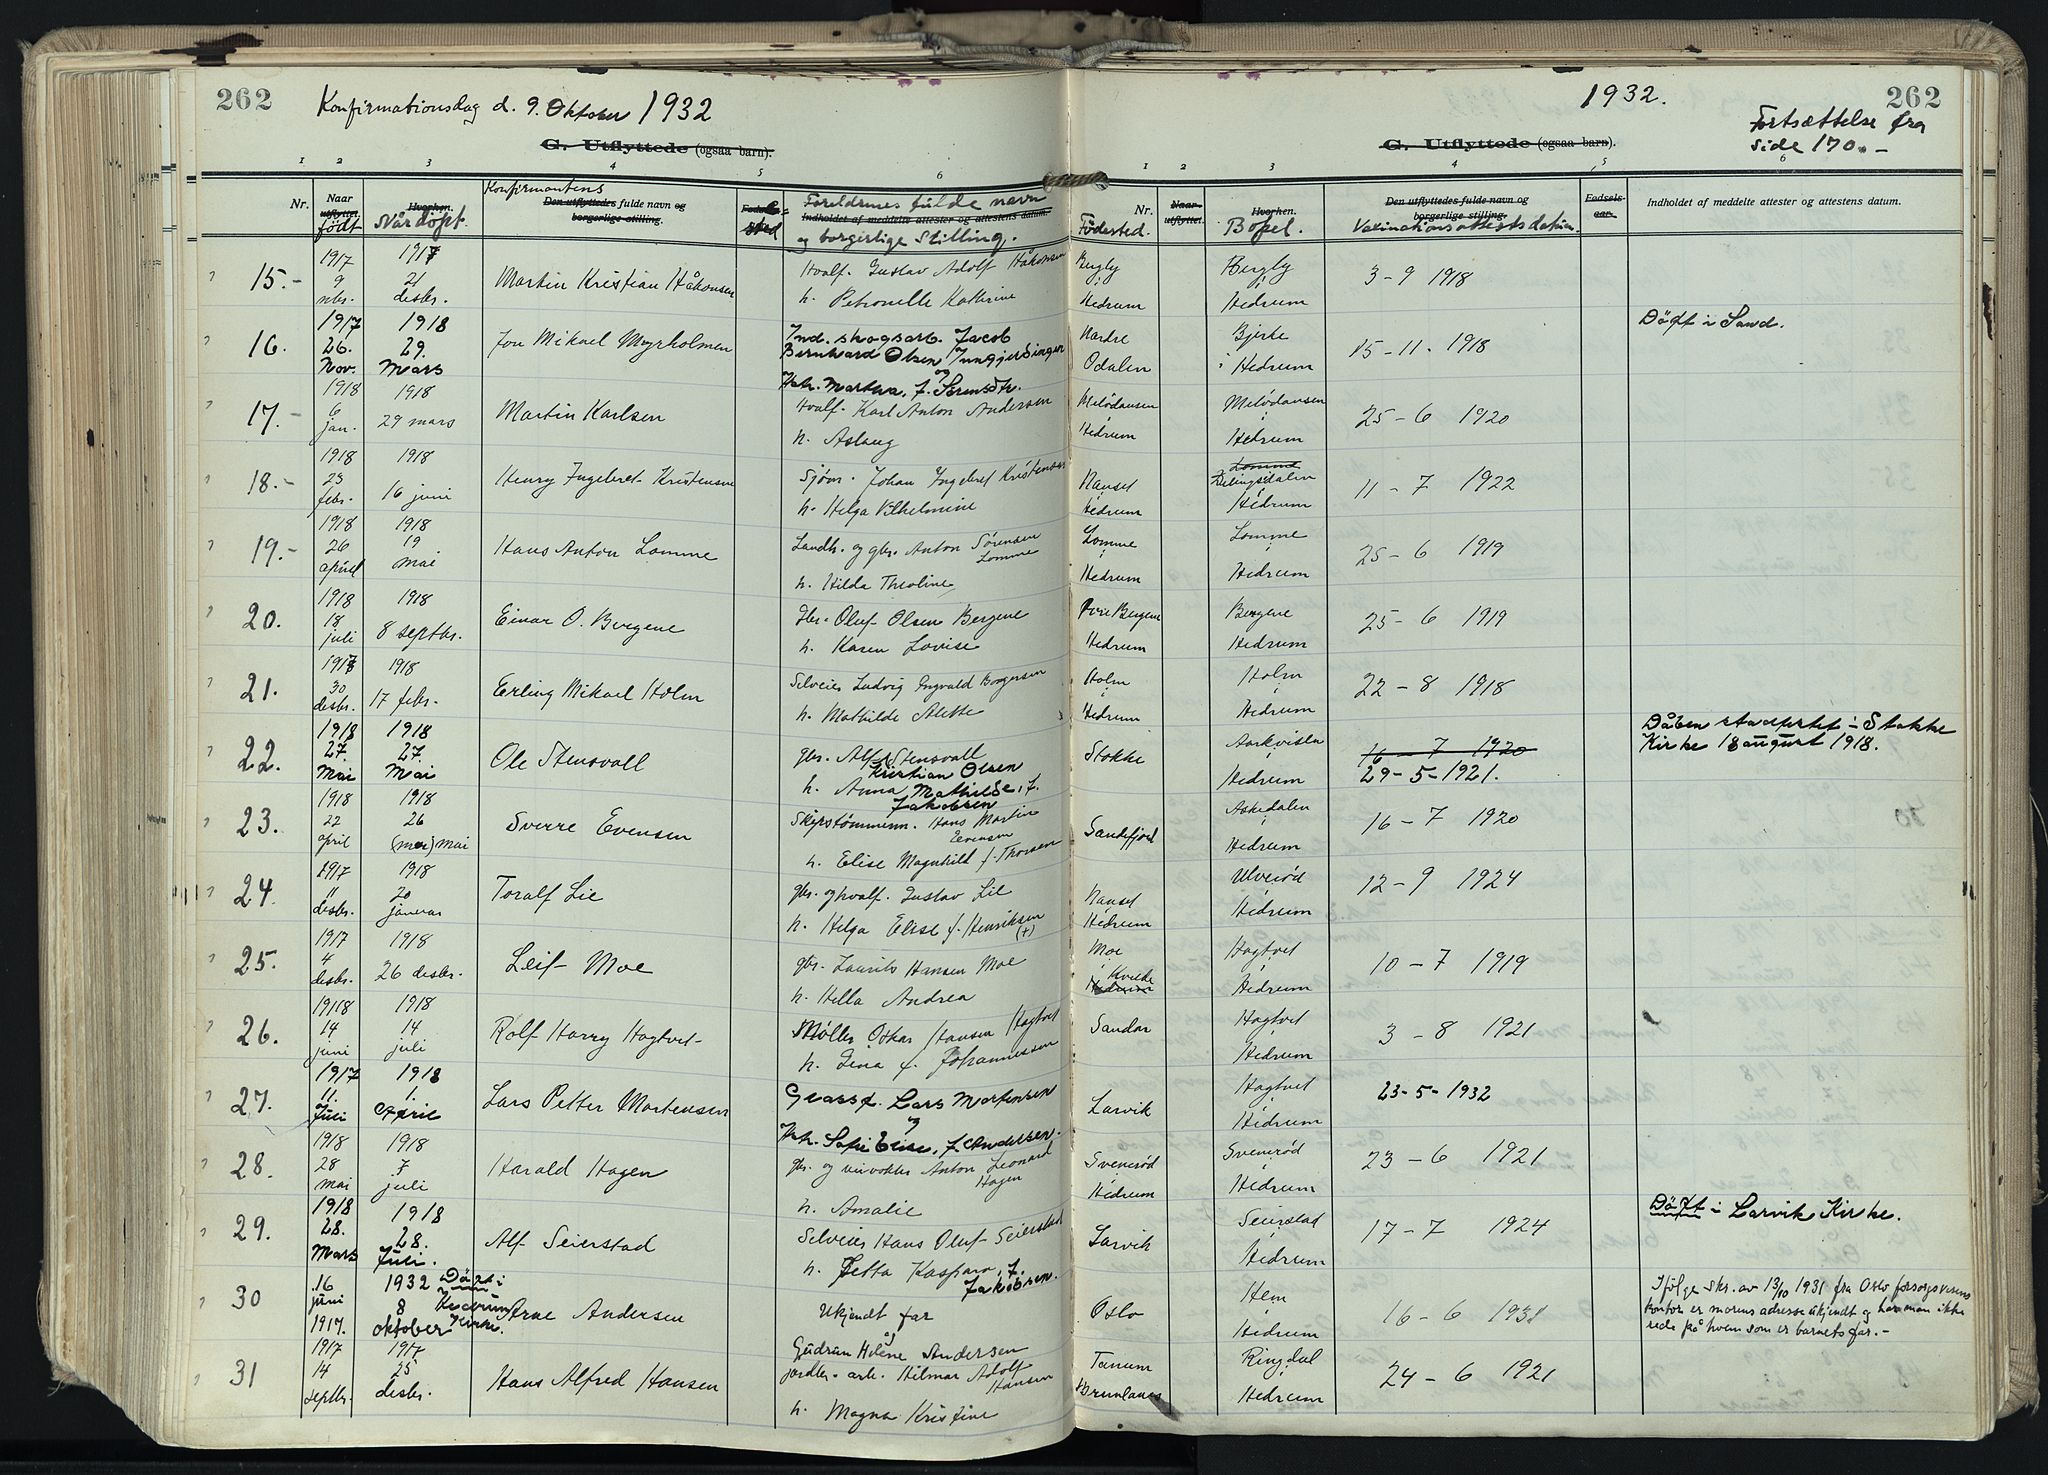 262
Konfirmationsdag d. 9. Oktober 1932
G. Utflyttede (ogsaa barn).
1 2 3 4 5 6
Nr.
Naar utflyttet. født
Hvorhen. Når döpt.
Konfirmantens
Den utflyttedes fulde navn og borgerlige stilling.
sted
Foreldrenes fulde navn
Indholdet af meddelte attester og attestens datum.
og borgerlige Stilling.
1932.
262
Fortsættelse fra
side 170.-
G. Utflyttede (ogsaa barn).
1 2 3 4 5 6
Nr.
Födested.
Naar utflyttet.
Hvorhen. Bopel.
Den utflyttedes fulde navn og borgerlige stilling.
Vaxinationsattests datum.
Fødselsaar.
Indholdet af meddelte attester og attestens datum.
15.- 1917 9 nbr. 1917 21 desbr. Martin Kristian Håkonsen Hvalf. Gustav Adolf Håkonsen
h. Petronelle Kathrine
Bergby i Hedrum Bergby i Hedrum 3-9 1918
16. 1917 26. Nov. 1918 29. Mars Jon Mikael Myrholmen Ind. skogsarb. Jacob
Bernhard Olsen Inngjerdingen
og
Htr. Martha, f. Sörensdtr.
Nordre Odalen Bjerke i Hedrum 15-11-1918 Döpt i Sand.
17.- 1918 6 jan. 1918 29 mars Martin Karlsen Hvalf. Karl Anton Andersen
h. Aslaug
Melödansen i Hedrum Melödansen i Hedrum 25-6 1920
18.- 1918 23 febr. 1918 16 juni Henry Ingebret Kristensen Sjöm. Johan Ingebret Kristensen
h. Helga Vilhelmine
Nanset i Hedrum Lomme Hedrum 11-7 1922
19.- 1918 26 april 1918 19 mai Hans Anton Lomme Landh. og gbr. Anton Sørensen
Lomme
h. Hilda Theoline
Lomme i Hedrum Lomme i Hedrum 25-6 1919
20. 1918 18 juli 1918 8 septbr. Einar O. Bergene Gbr. Oluf Olsen Bergene
h. Karen Lovise
Øvre Bergene Hedrum Bergene i Hedrum 25-6 1919
21. 1917 30 desbr. 1918 17 febr. Erling Mikael Holm Selveier Ludvig Ingvald Borgersen
h. Mathilde Alette
Holm i Hedrum Holm i Hedrum 22-8 1918
22. 1918 27. Mai 1918 27. Mai Ole Stensvoll gbr. Alf Stensvoll
Kristian Olsen
h. Anna Mathilde, f.
Jakobsen
Stokke Hedrum 16-7 1920
29-5-1921.
Dåben stadfestet i Stokke
Kirke 18 august 1918.
23. 1918 22 april 1918 26 (mai) mai Sverre Evensen Skipstömmerm. Hans Martin
Evensen
h. Elise Magnhild f. Thorsen
Sandefjord Askedalen i Hedrum 16-7 1920
24. 1917 11 desbr. 1918 20 januar Toralf Lie gbr. og hvalf. Gustav Lie
h. Helga Elise f. Henriksen
(+)
Nanset i Hedrum Ulverød i Hedrum 12-9 1924
25. 1917 4 desbr. 1918 26 desbr. Leif Moe gbr. Laurits Hansen Moe
h. Hella Andrea
Moe i Kvelde Hedrum Hagtvet i Hedrum 10-7 1919
26. 1918 14 juni 1918 14 juli Rolf Harry Hagtvet Møller Oskar Hansen Hagtvet
h. Lina f. Johannessen
Sandar Hagtvet i Hedrum 3-8 1921
27. 1917 11. Juli 1918 1. April Lars Petter Mortensen Grossr. Lars Mortensen
og
Htr. Sofie Elise, f. Andersen.
Larvik Hagtvet i Hedrum 23-5-1932
28. 1918 28 mai 1918 7 juli Harald Hagen gbr. og veivokter Anton Leonard
Hagen
h. Amalie
Svenerød i Hedrum Svenerød i Hedrum 23-6 1921
29. 1918 28. Mars 1918 28. Juli. Alf Seierstad Selveier Hans Oluf Seierstad
h. Jetta Kaspara, f.
Jakobsen.
Larvik Seierstad i Hedrum 17-7 1924 Döpt i Larvik Kirke.
30 16 juni 1917. 1932 8 oktober Döpt i Hedrum Kirke. Arne Andersen Ukjendt far
og
Gudrun Helene Andersen
Oslo Hem i Hedrum 16-6 1931
Ifølge skr. av 13/10 1931 fra Oslo forsorgsvesens
kontor er morens adresse ukjendt og har man ikke
rede på hvem som er barnets far.-
31 1917 14 septbr. 1917 25 desbr. Hans Alfred Hansen jordbr. arb. Hilmar Adolf
Hansen
h. Magna Kristine
Tanum Brunlanes Ringdal i Hedrum 24-6 1921